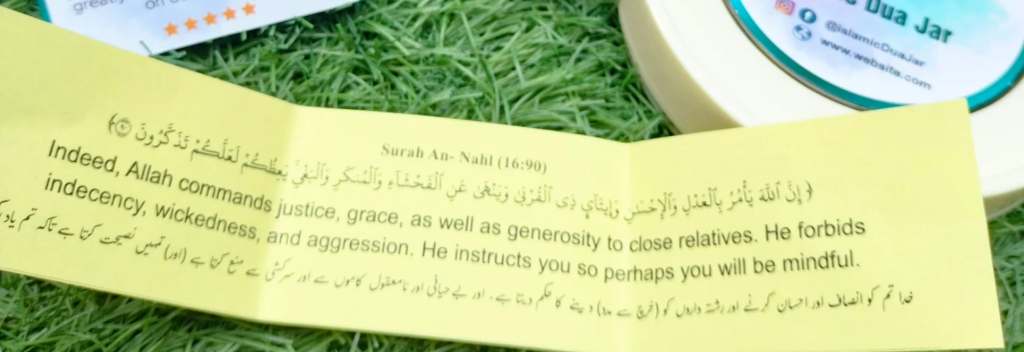 greatly
★★★★★
Dua Jar
@IslamicDuaJar
www.website.com
Surah An- Nahl (16:90)
﴿ إِنَّ ٱللَّهَ يَأْمُرُ بِٱلْعَدْلِ وَٱلْإِحْسَـٰنِ وَإِيتَآئِ ذِى ٱلْقُرْبَىٰ وَيَنْهَىٰ عَنِ ٱلْفَحْشَآءِ وَٱلْمُنكَرِ وَٱلْبَغْىِ ۚ يَعِظُكُمْ لَعَلَّكُمْ تَذَكَّرُونَ ٩٠ ﴾
Indeed, Allah commands justice, grace, as well as generosity to close relatives. He forbids
indecency, wickedness, and aggression. He instructs you so perhaps you will be mindful.
خدا تم کو انصاف اور احسان کرنے اور رشتہ داروں کو (خرچ سے مدد) دینے کا حکم دیتا ہے۔ اور بےحیائی اور نامعقول کاموں سے اور سرکشی سے منع کرتا ہے (اور) تمہیں نصیحت کرتا ہے تاکہ تم یاد